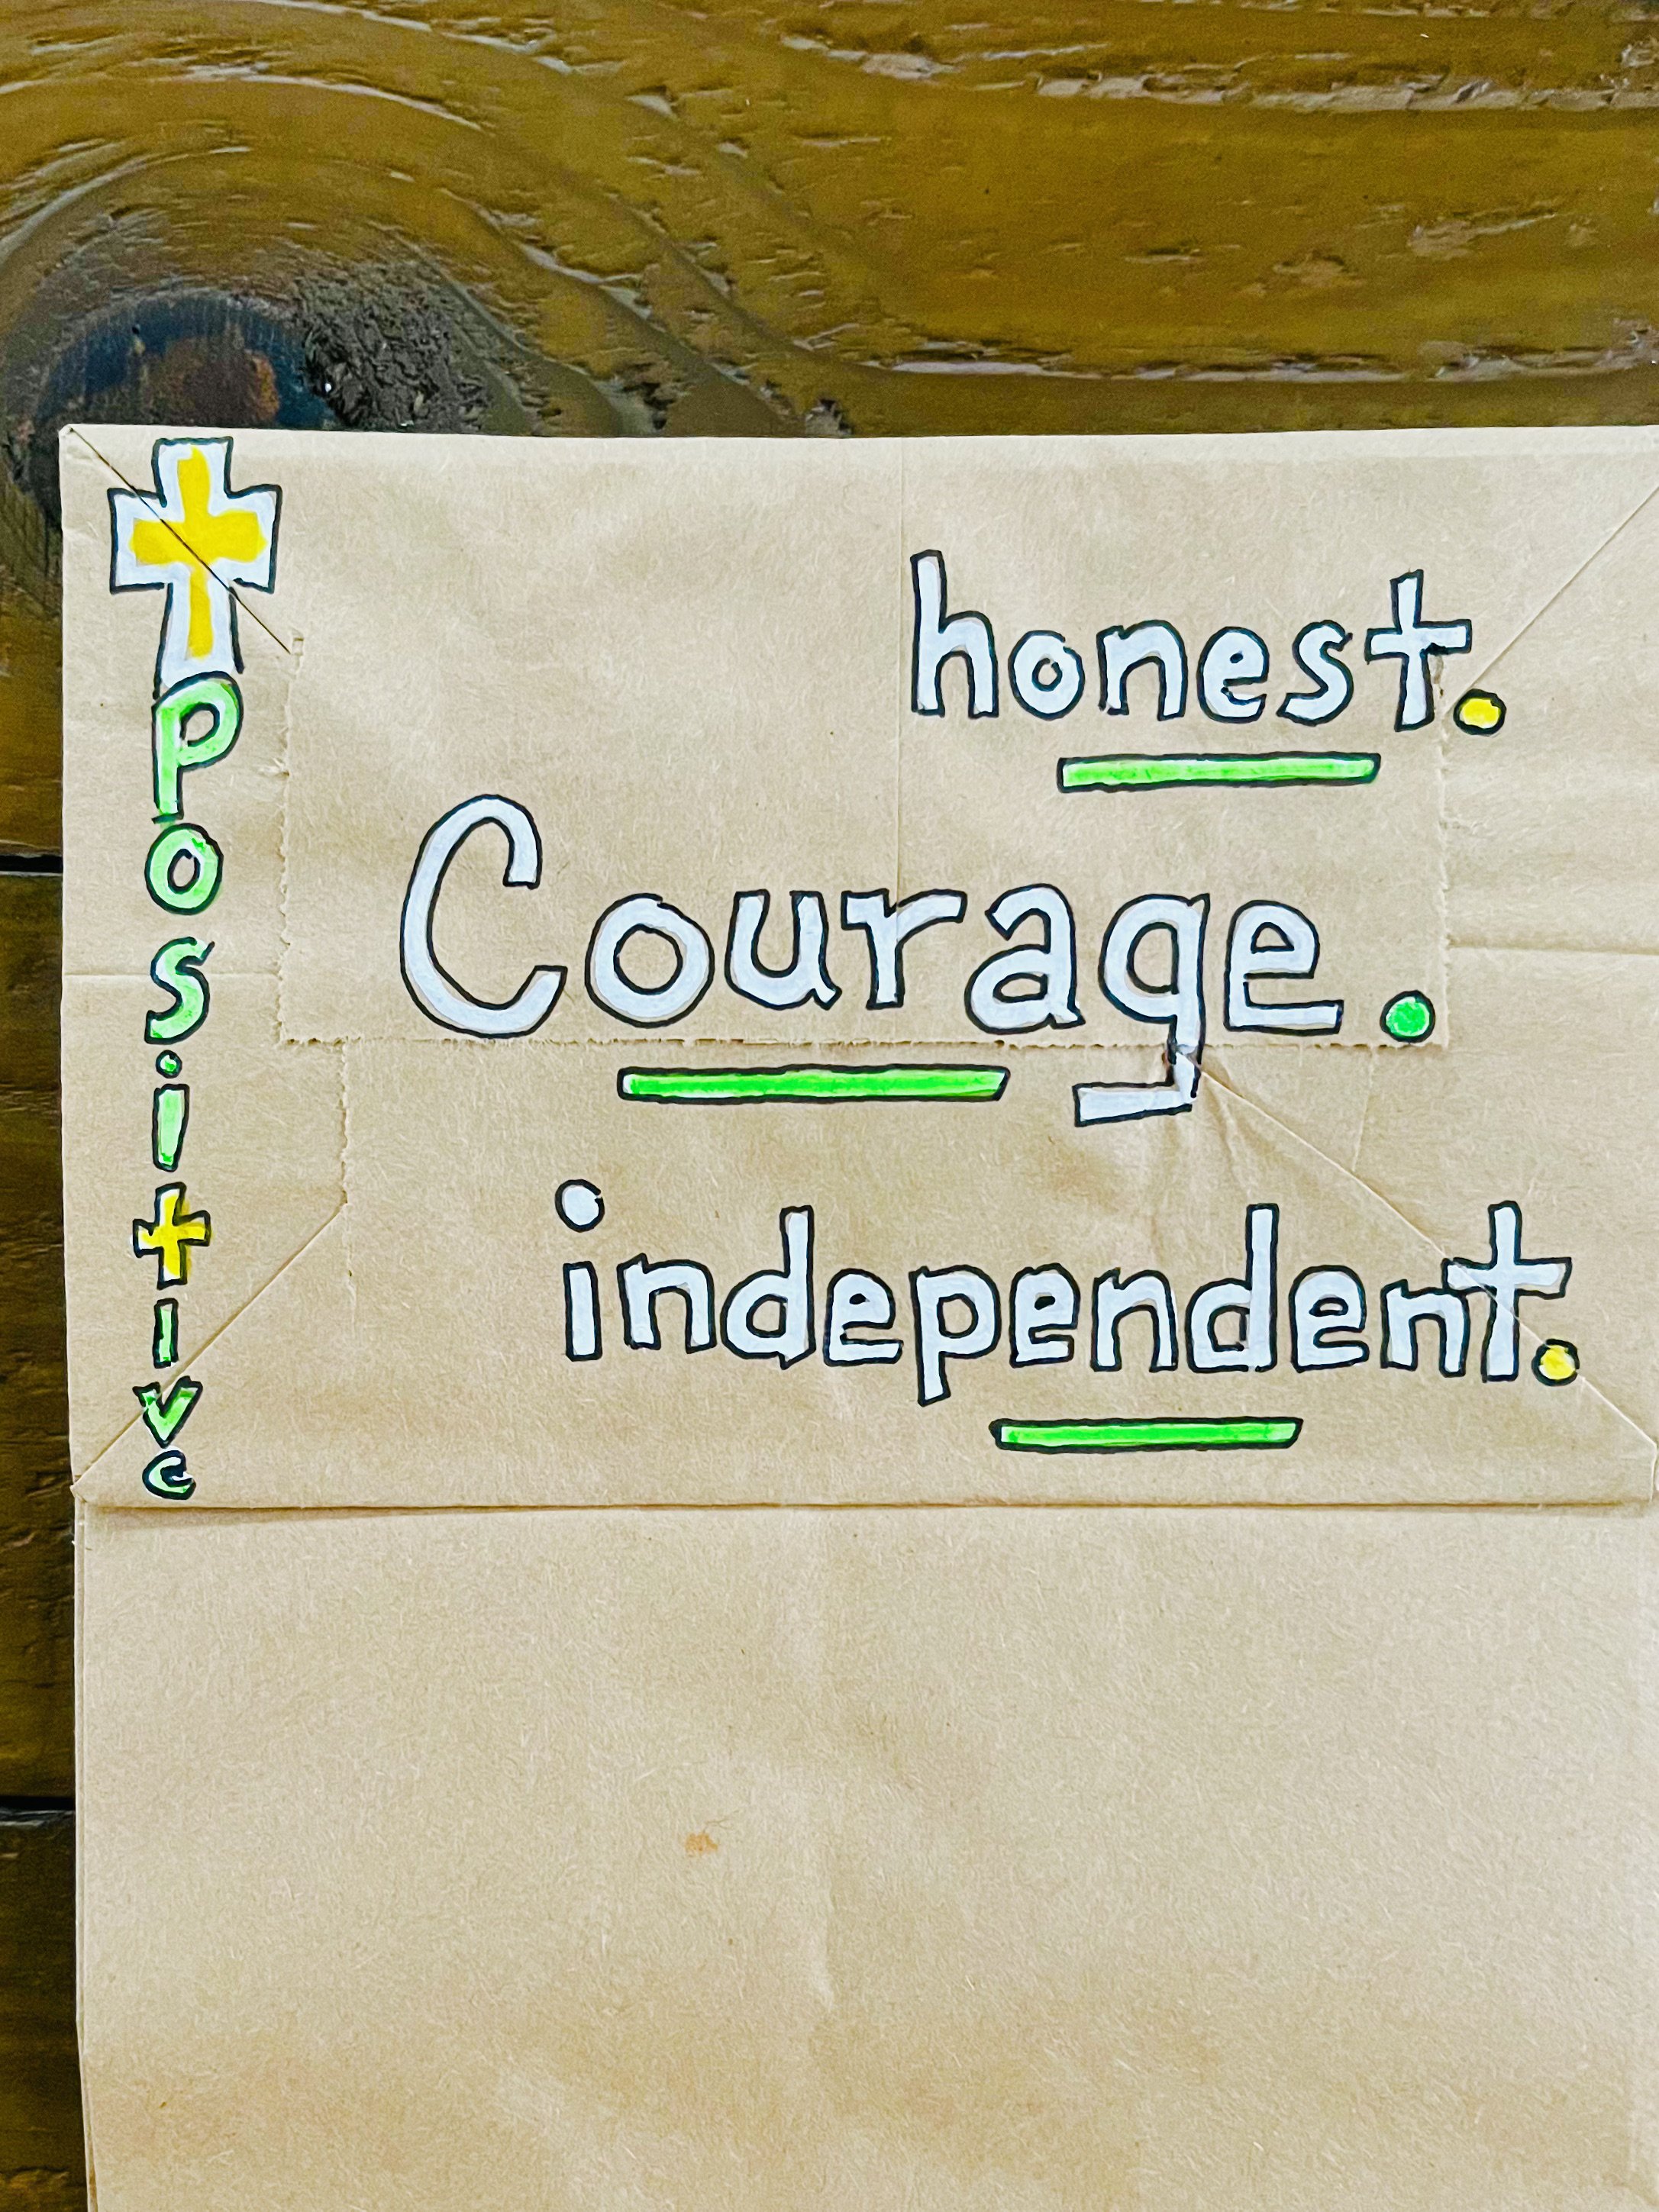 positive
honest.
Courage.
independent.